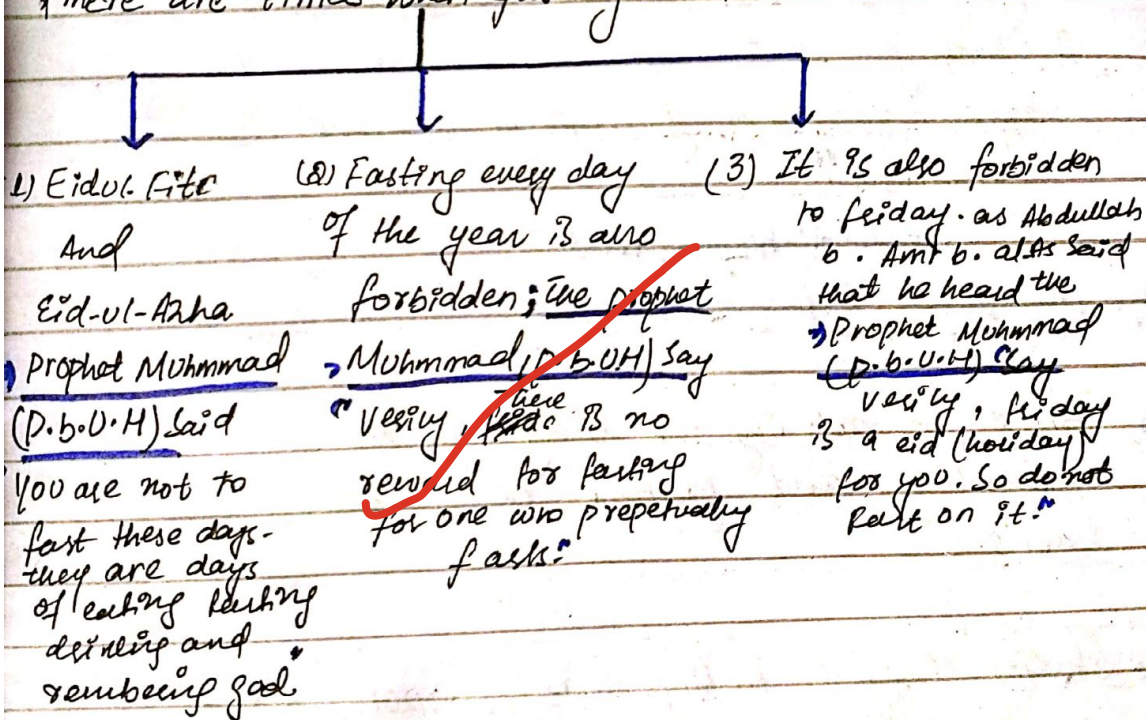 There are times when
1) Eidul-Fitr
And
Eid-ul-Azha
Prophet Muhmmad
(P.b.U.H) Said
You are not to
fast these days-
they are days
of eating
drinking and
rembeing god"
(2) Fasting every day
of the year is also
forbidden; The prophet
Muhmmad, (P.b.UH) Say
" Verily, there is no
reward for fasting
for one who prepetually
fasts."
(3) It is also forbidden
to friday. as Abdullah
b. Amr b. al As Said
that he heard the
Prophet Muhmmad
(P.b.U.H) "Say
Verily, friday
is a eid (holiday)
for you. So do not
Fast on it."